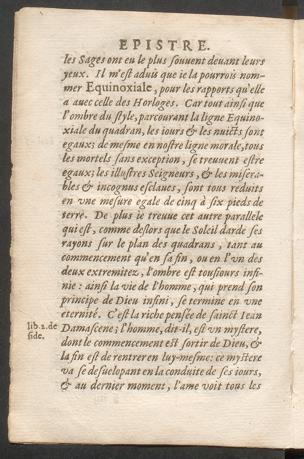 EPISTRE.
les Sages ont eu le plus souvent devant leurs
yeux. Il m'est aduis que ie la pourrois nom-
mer Equinoxiale, pour les rapports qu'elle
a auec celle des Horloges. Car tout ainsi que
l'ombre du style, parcourant la ligne Equino-
xiale du quadran, les iours & les nuicts sont
egaux; de mesme en nostre ligne morale, tous
les mortels sans exception, se treuuent estre
egaux; les illustres Seigneurs, & les misera-
bles & incognus esclaues, sont tous reduits
en vne mesure egale de cinq à six pieds de
terre. De plus ie treuue cet autre parallele
qui est, comme deslors que le Soleil darde ses
rayons sur le plan des quadrans, tant au
commencement qu'en sa fin, ou en l'vn des
deux extremitez, l'ombre est tousiours infi-
nie: ainsi la vie de l'homme, qui prend son
principe de Dieu infini, se termine en vne
eternité. C'est la riche pensée de sainct Iean
lib. 2. de
fide.
Damascene; l'homme, dit-il, est vn mystere,
dont le commencement est sortir de Dieu, &
la fin est de rentrer en luy-mesme: ce mystere
va se desuelopant en la conduite de ses iours,
& au dernier moment, l'ame voit tous les